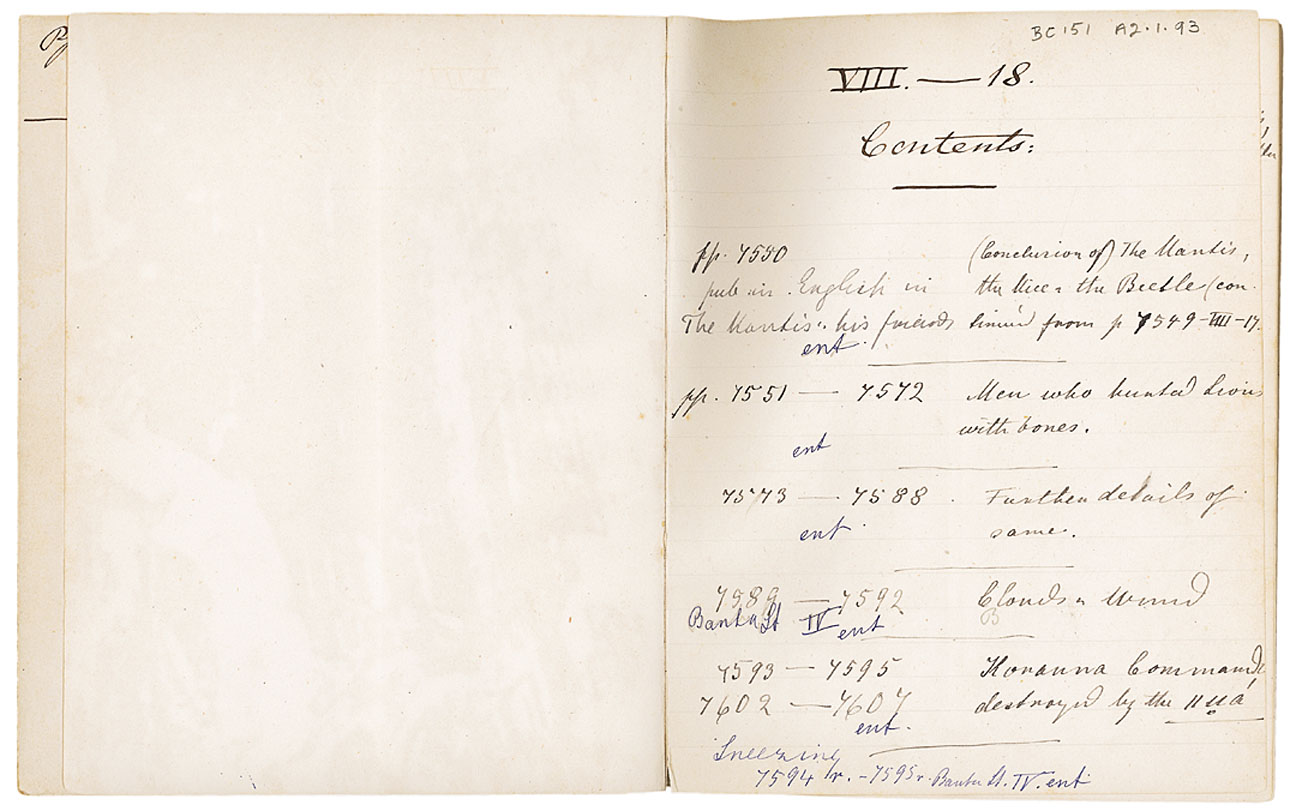 BC 151 A2.1.93
VIII. — 18.
Contents:
pp. 7550 (Conclusion of) The Mantis,
pub. in English in the Mice & the Beetle (con-
The Mantis & his friends tinued from p 7549 - VIII - 17.
ent.
pp. 7551 — 7572 Men who hunted Lions
with bones.
ent
7573 — 7588. Further details of
same.
ent.
7589 — 7592 Clouds & Wind
Bantu St IV ent B
7593 — 7595 Koranna Commando
7602 — 7607 destroyed by the
ent.
Sneezing
7594 r. - 7595 r. Bantu St. IV. ent